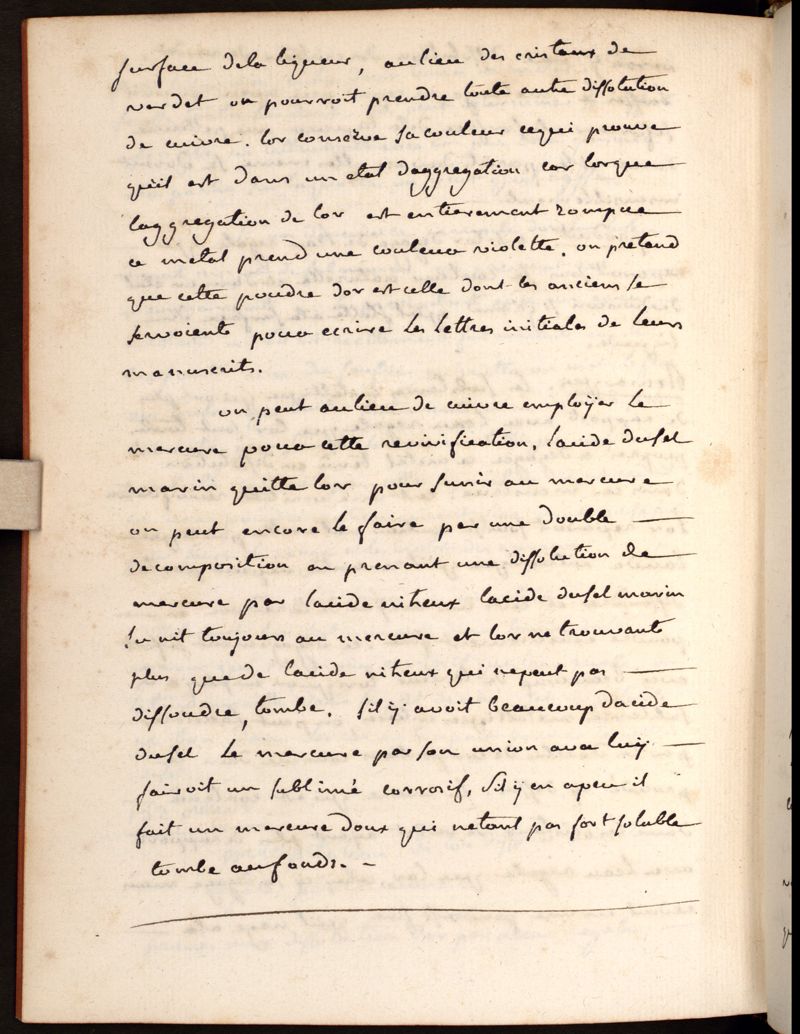 surface dela liqueur, aulieu des cristaux de
verdet on pourroit prendre toute autre dissolution
de cuivre. lor conserve sa couleur cequi prouve
quil est dans un etat daggregation car lorque
laggregation de lor est entierement rompue
ce metal prend une couleur violette. on pretend
que cette poudre dor est celle dont les anciens se
servoients pour ecrire les lettres initiales de leurs
manuscrits.
on peut aulieu de cuivre employer le
mercure pour cette revivification, lacide dusel
marin quitte lor pour sunir au mercure
on peut encore le faire par une double
decomposition en prenant une dissolution de
mercure par lacide nitreux lacide dusel marin
sunit toujours au mercure et lor netrouvants
plus quede lacide nitreux qui nepeut pas
dissoudre, tombe. sil ÿ avoit beaucoup dacide
dusel le mercure par son union avec luÿ
fairoit un sublimé corrosif, sil ÿ en apeu il
fait un mercure doux qui netant pas fort soluble
tombe aufonds. -